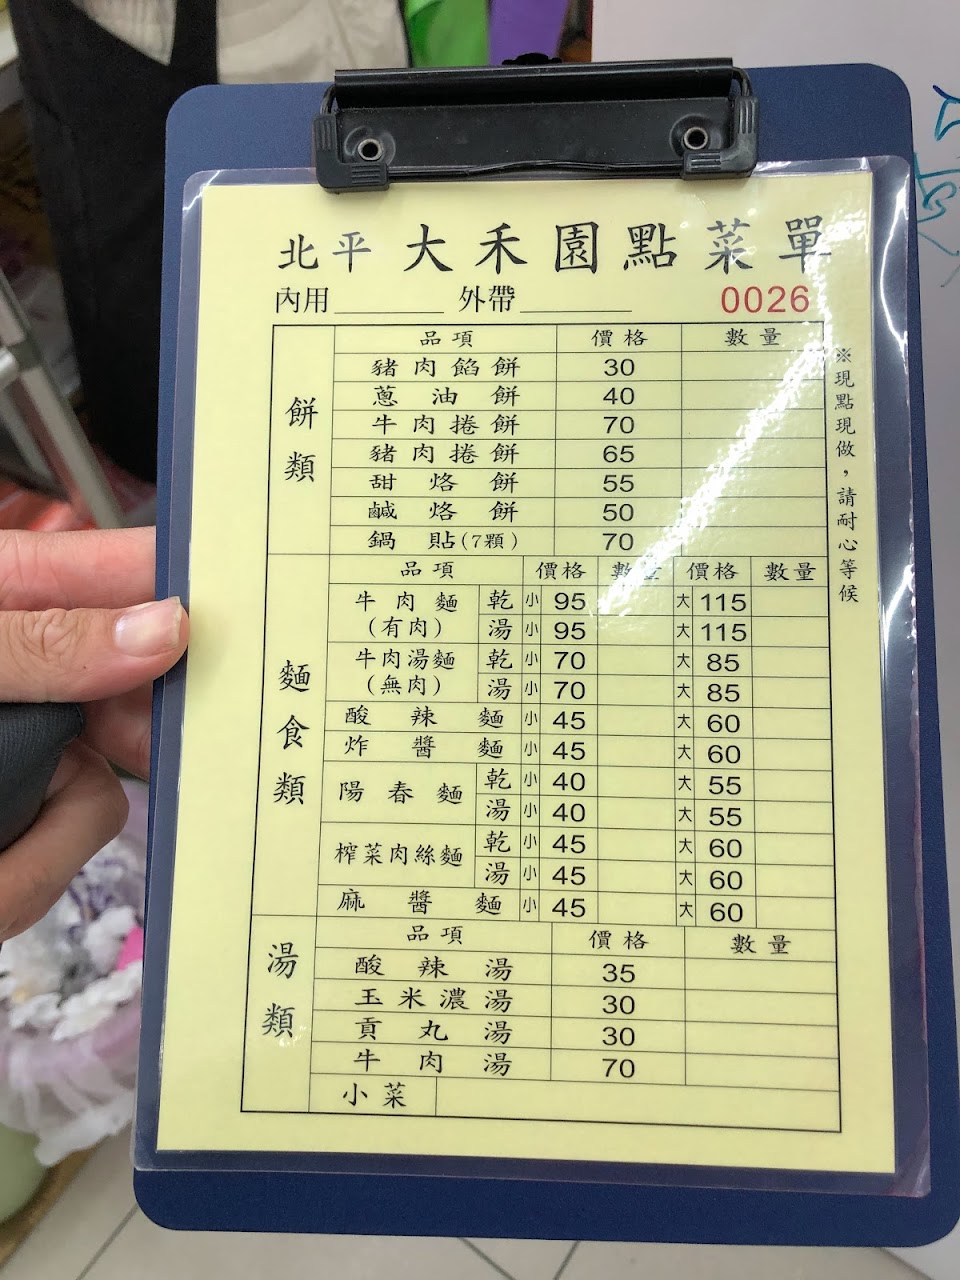 北平 大禾園點菜單
內用 外帶 0026
※現點現做，請耐心等候
餅類
品項 價格 數量
豬肉餡餅 30
蔥油餅 40
牛肉捲餅 70
豬肉捲餅 65
甜烙餅 55
鹹烙餅 50
鍋貼(7顆) 70
麵食類
品項 價格 數量 價格 數量
牛肉麵(有肉) 乾 小 95 大 115
湯 小 95 大 115
牛肉湯麵(無肉) 乾 小 70 大 85
湯 小 70 大 85
酸辣麵 小 45 大 60
炸醬麵 小 45 大 60
陽春麵 乾 小 40 大 55
湯 小 40 大 55
榨菜肉絲麵 乾 小 45 大 60
湯 小 45 大 60
麻醬麵 小 45 大 60
湯類
品項 價格 數量
酸辣湯 35
玉米濃湯 30
貢丸湯 30
牛肉湯 70
小菜